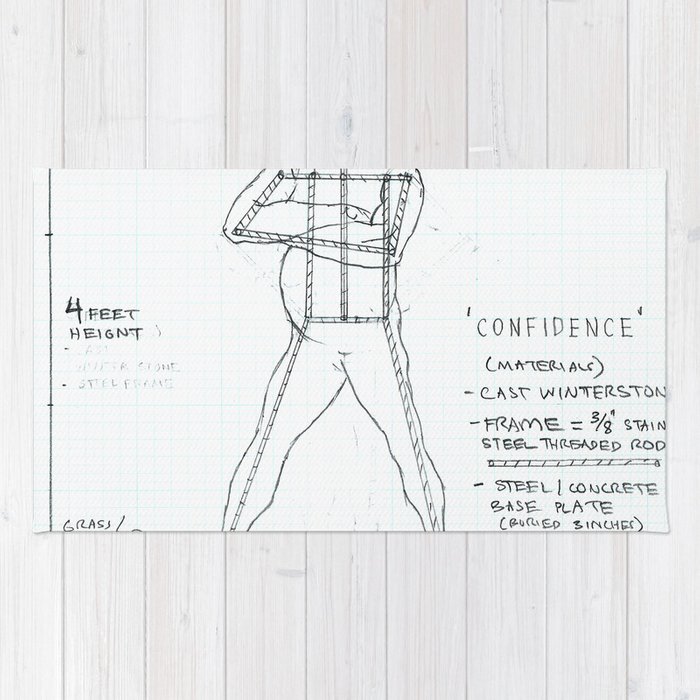 4 FEET
HEIGNT
- CAST
WINTER STONE
- STEEL FRAME
GRASS/
'CONFIDENCE'
(MATERIALS)
- CAST WINTERSTON
- FRAME = 3/8" STAIN
STEEL THREADED ROD
- STEEL / CONCRETE
BASE PLATE
(BURIED 3 INCHES)